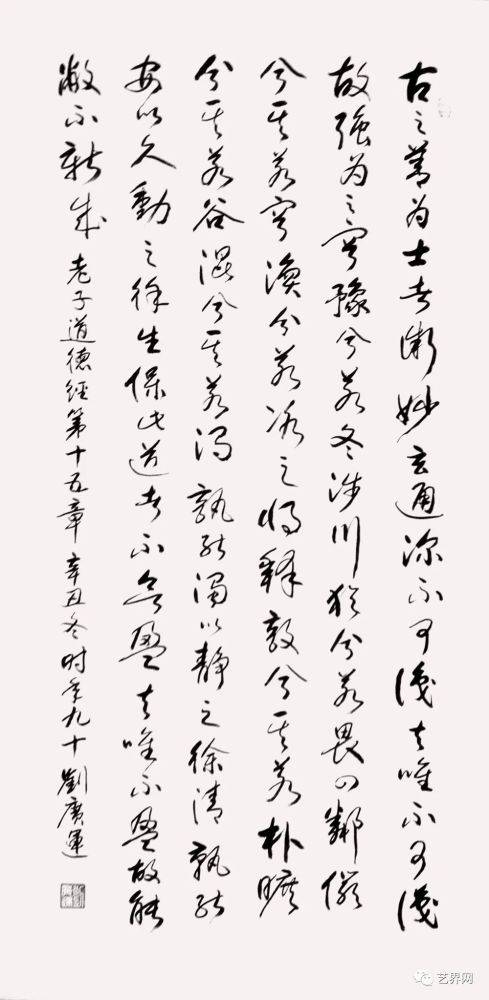 古之善为士者微妙玄通深不可識夫唯不可識
故強为之容豫兮若冬涉川猶兮若畏四鄰儼
兮其若容渙兮若冰之將釋敦兮其若朴曠
兮其若谷混兮其若濁孰能濁以静之徐清孰能
安以久動之徐生保此道者不欲盈夫唯不盈故能
敝不新成 老子道德經第十五章 辛丑冬时年九十劉廣運
艺界网